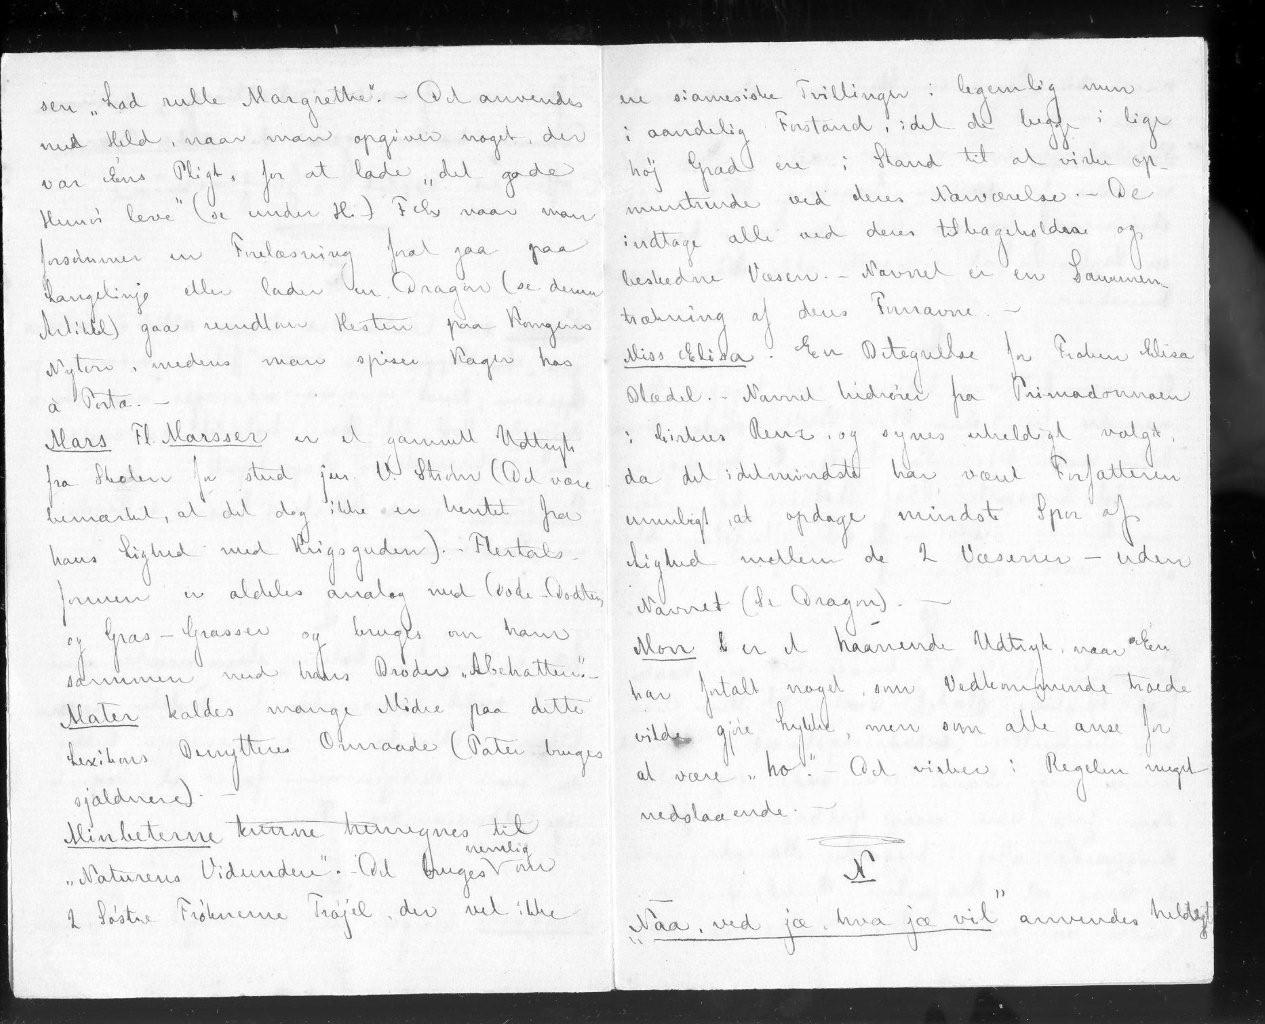 sen „Lad rulle Margrethe“. – Det anvendes
med Held, naar man opgiver noget, der
var Ens Pligt, for at lade „det gode
Humør leve“ (se under H.) F Ex naar man
forsømmer en Forelæsning for at gaa paa
Langelinje eller lader en Dragon (se denne
Artikel) gaa rundtom Hesten paa Kongens
Nytorv, medens man spiser Kager hos
à Porta. –
Mars Fl. Marsser er et gammelt Udtryk
fra Skolen for stud jur. V. Strøm (Det være
bemærket, at det dog ikke er hentet fra
hans Lighed med Krigsguden). – Flertals-
formen er aldeles analog med
og Gras – Grasser og bruges om ham
sammen med hans Broder „Abekatten“. –
Mater kaldes mange Mødre paa dette
Lexikons Benytteres Omraade (Pater bruges
sjældnere). –
Minbeterne kunne henregnes til
„Naturens Vidundere“. – Det bruges nemlig om
2 Søstre Frøknerne Trøjel, der vel ikke
ere siamesiske Tvillinger i legemlig men
i aandelig Forstand, idet de begge i lige
høj Grad ere i Stand til at virke op-
muntrende ved deres Nærværelse. – De
indtage alle ved deres tilbageholdne og
beskedne Væsen. – Navnet er en Sammen-
trækning af deres Fornavne. –
Miss Elisa. En Betegnelse for Frøken Elisa
Blædel. – Navnet hidrører fra Primadonnaen
i Cirkus Renz, og synes uheldigt valgt,
da det idetmindste har været Forfatteren
umuligt, at opdage mindste Spor af
Lighed mellem de 2 Væsener – uden
Navnet (Se Dragon). –
Morr er et haanende Udtryk, naar En
har fortalt noget, som Vedkommende troede
vilde gjøre Lykke, men som alle anse for
at være „ho“. – Det virker i Regelen meget
nedslaaende. –
N
„Naa, ved jæ, hva jæ vil“ anvendes heldigt